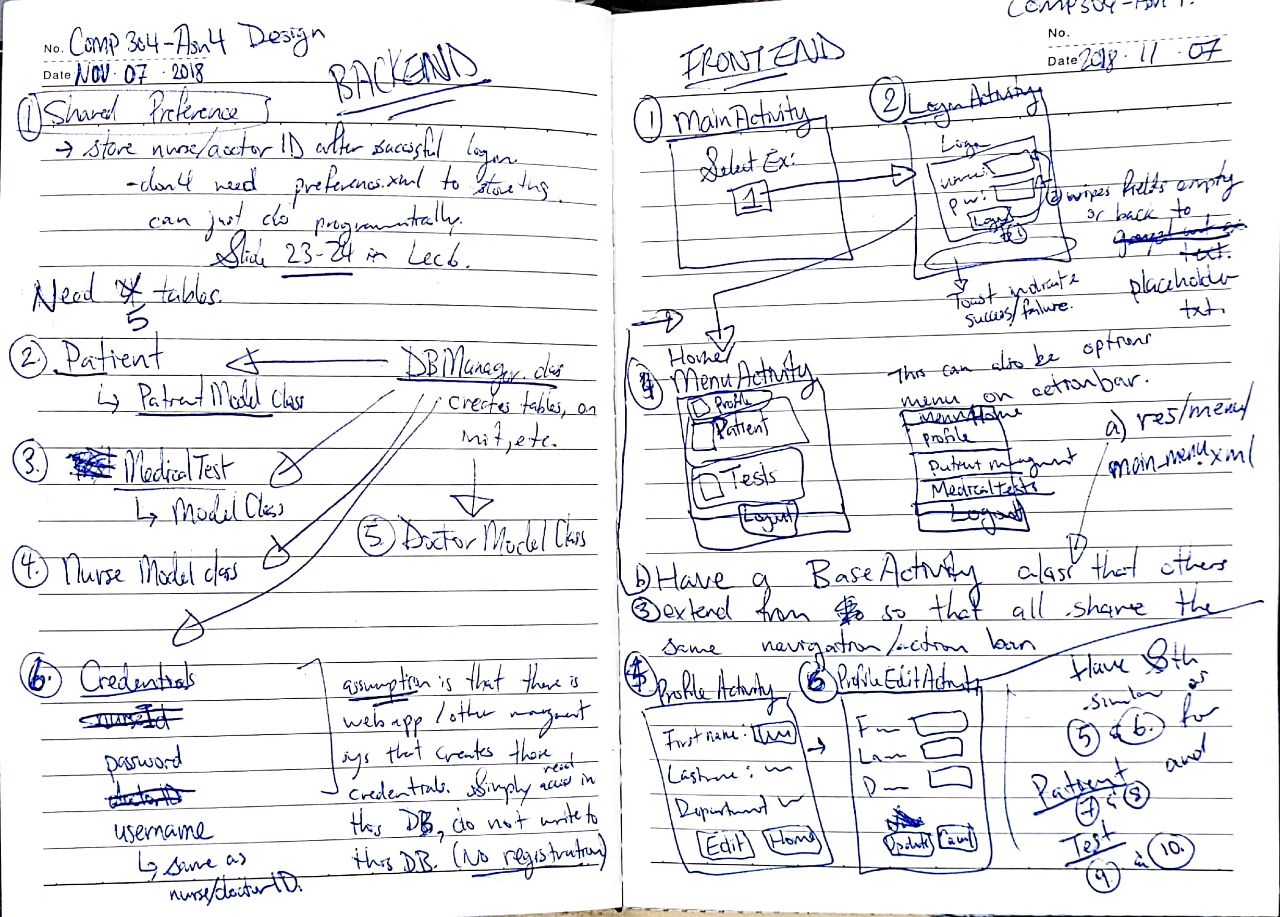 No. Comp 304-Asn4 Design
Date NOV. 07 . 2018
BACKEND
① Shared Preference
→ store nurse/doctor ID after successful login.
-don4 need preference.xml to
can just do programmatically.
Slide 23-24 in Lec6.
Need tables.
5
②. Patient
↳ Patient Model Class
DBManager class
creates tables, on
init, etc.
③. MedicalTest
↳ Model Class
⑤. Doctor Model Class
④. Nurse Model class
⑥. Credentials
nurseId
password
doctorID
username
↳ same as
nurse/doctorID.
assumption is that there is
web app / other
sys that creates those
credentials. Simply read access in
this DB, do not write to
this DB. (No registration)
Comp304-Asn4.
No.
Date 2018 . 11 . 07
FRONTEND
① MainActivity
Select Ex:
1
② LoginActivity
Login
pw:
Login
② wipes fields empty
or back to
text.
placeholder
txt.
Toast indicate
success/failure.
Home/
④ MenuActivity
Profile
Patient
Tests
Logout
This can also be options
menu on actionbar.
Menu/Home
profile
Patient
Medical tests
Logout
a) res/menu/
main_menu.xml
b) Have a BaseActivity class that others
③ extend from so that all share the
same navigation/action bar
⑤ Profile Activity
First name:
Lastname:
Department
Edit Home
→
⑥ ProfileEditActivity
F
La
D
Update Cancel
Have
similar as
⑤ & ⑥. for
Patient and
⑦ & ⑧
Test
⑨ & ⑩.